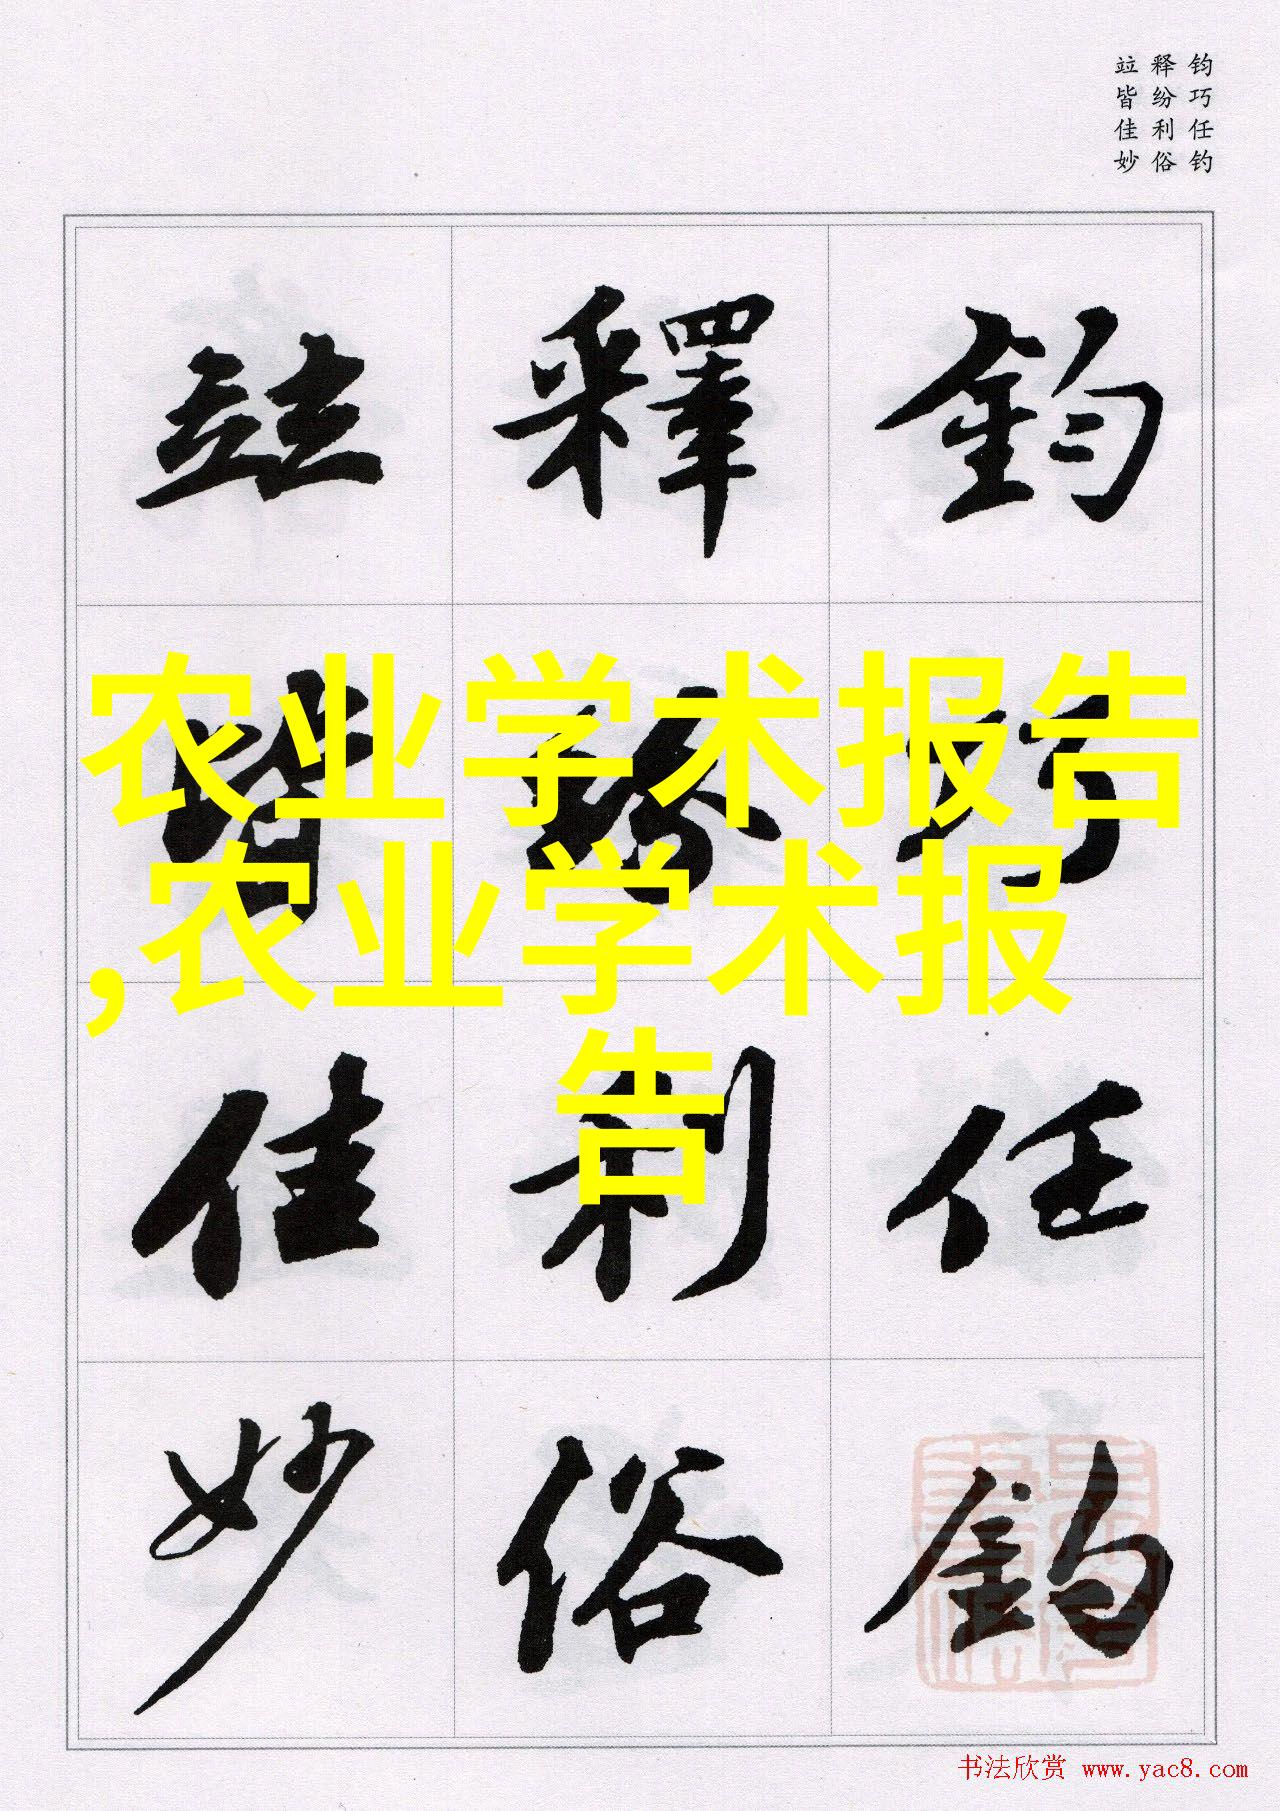 钧巧任钓
释纷利俗
竝皆佳妙
鈞巧任釣
釋紛利俗
竝皆佳妙
农业学术报告
,农业学术报
告
书法欣赏 www.yac8.com